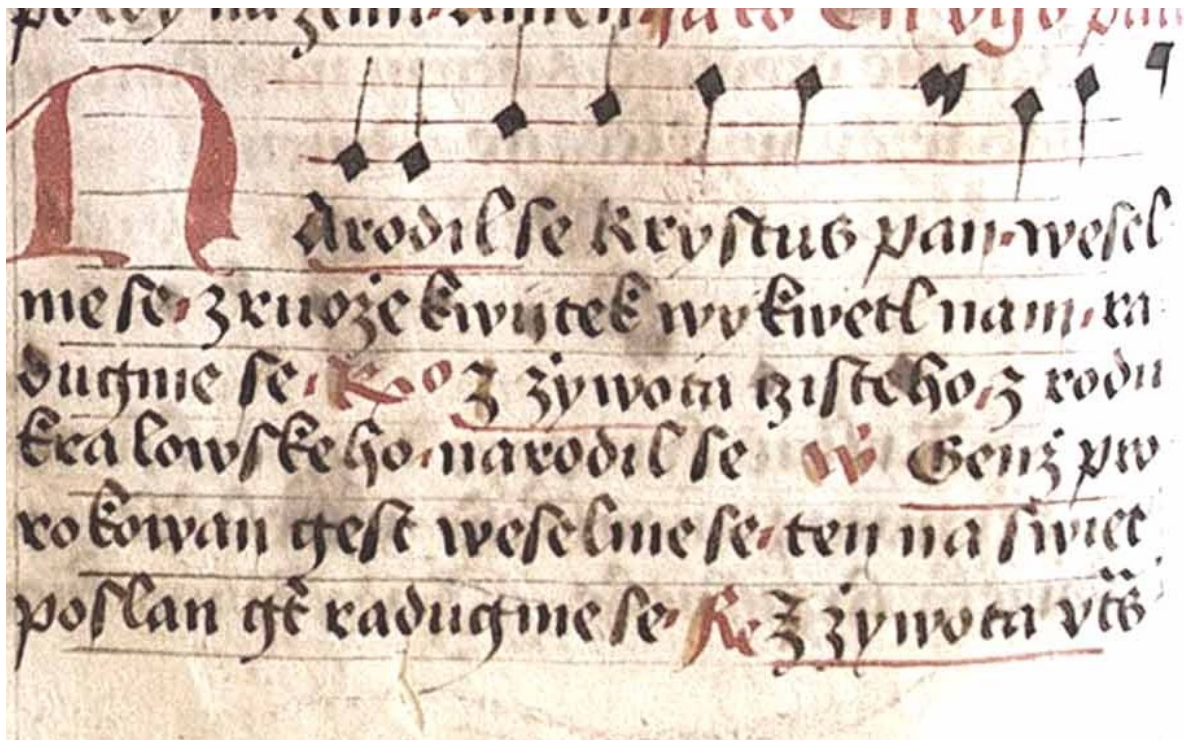 pokoy na zemi Amen
Narodil se krystus pan wesel
me se zruoże kwijtek wykwetl nam ra
dugme se Ro z żywota cżisteho z rodu
kralowskeho narodil se W Genż pro
rokowan gest weselme se ten na swiet
poslan gt raducgme se Ro z żywota vts